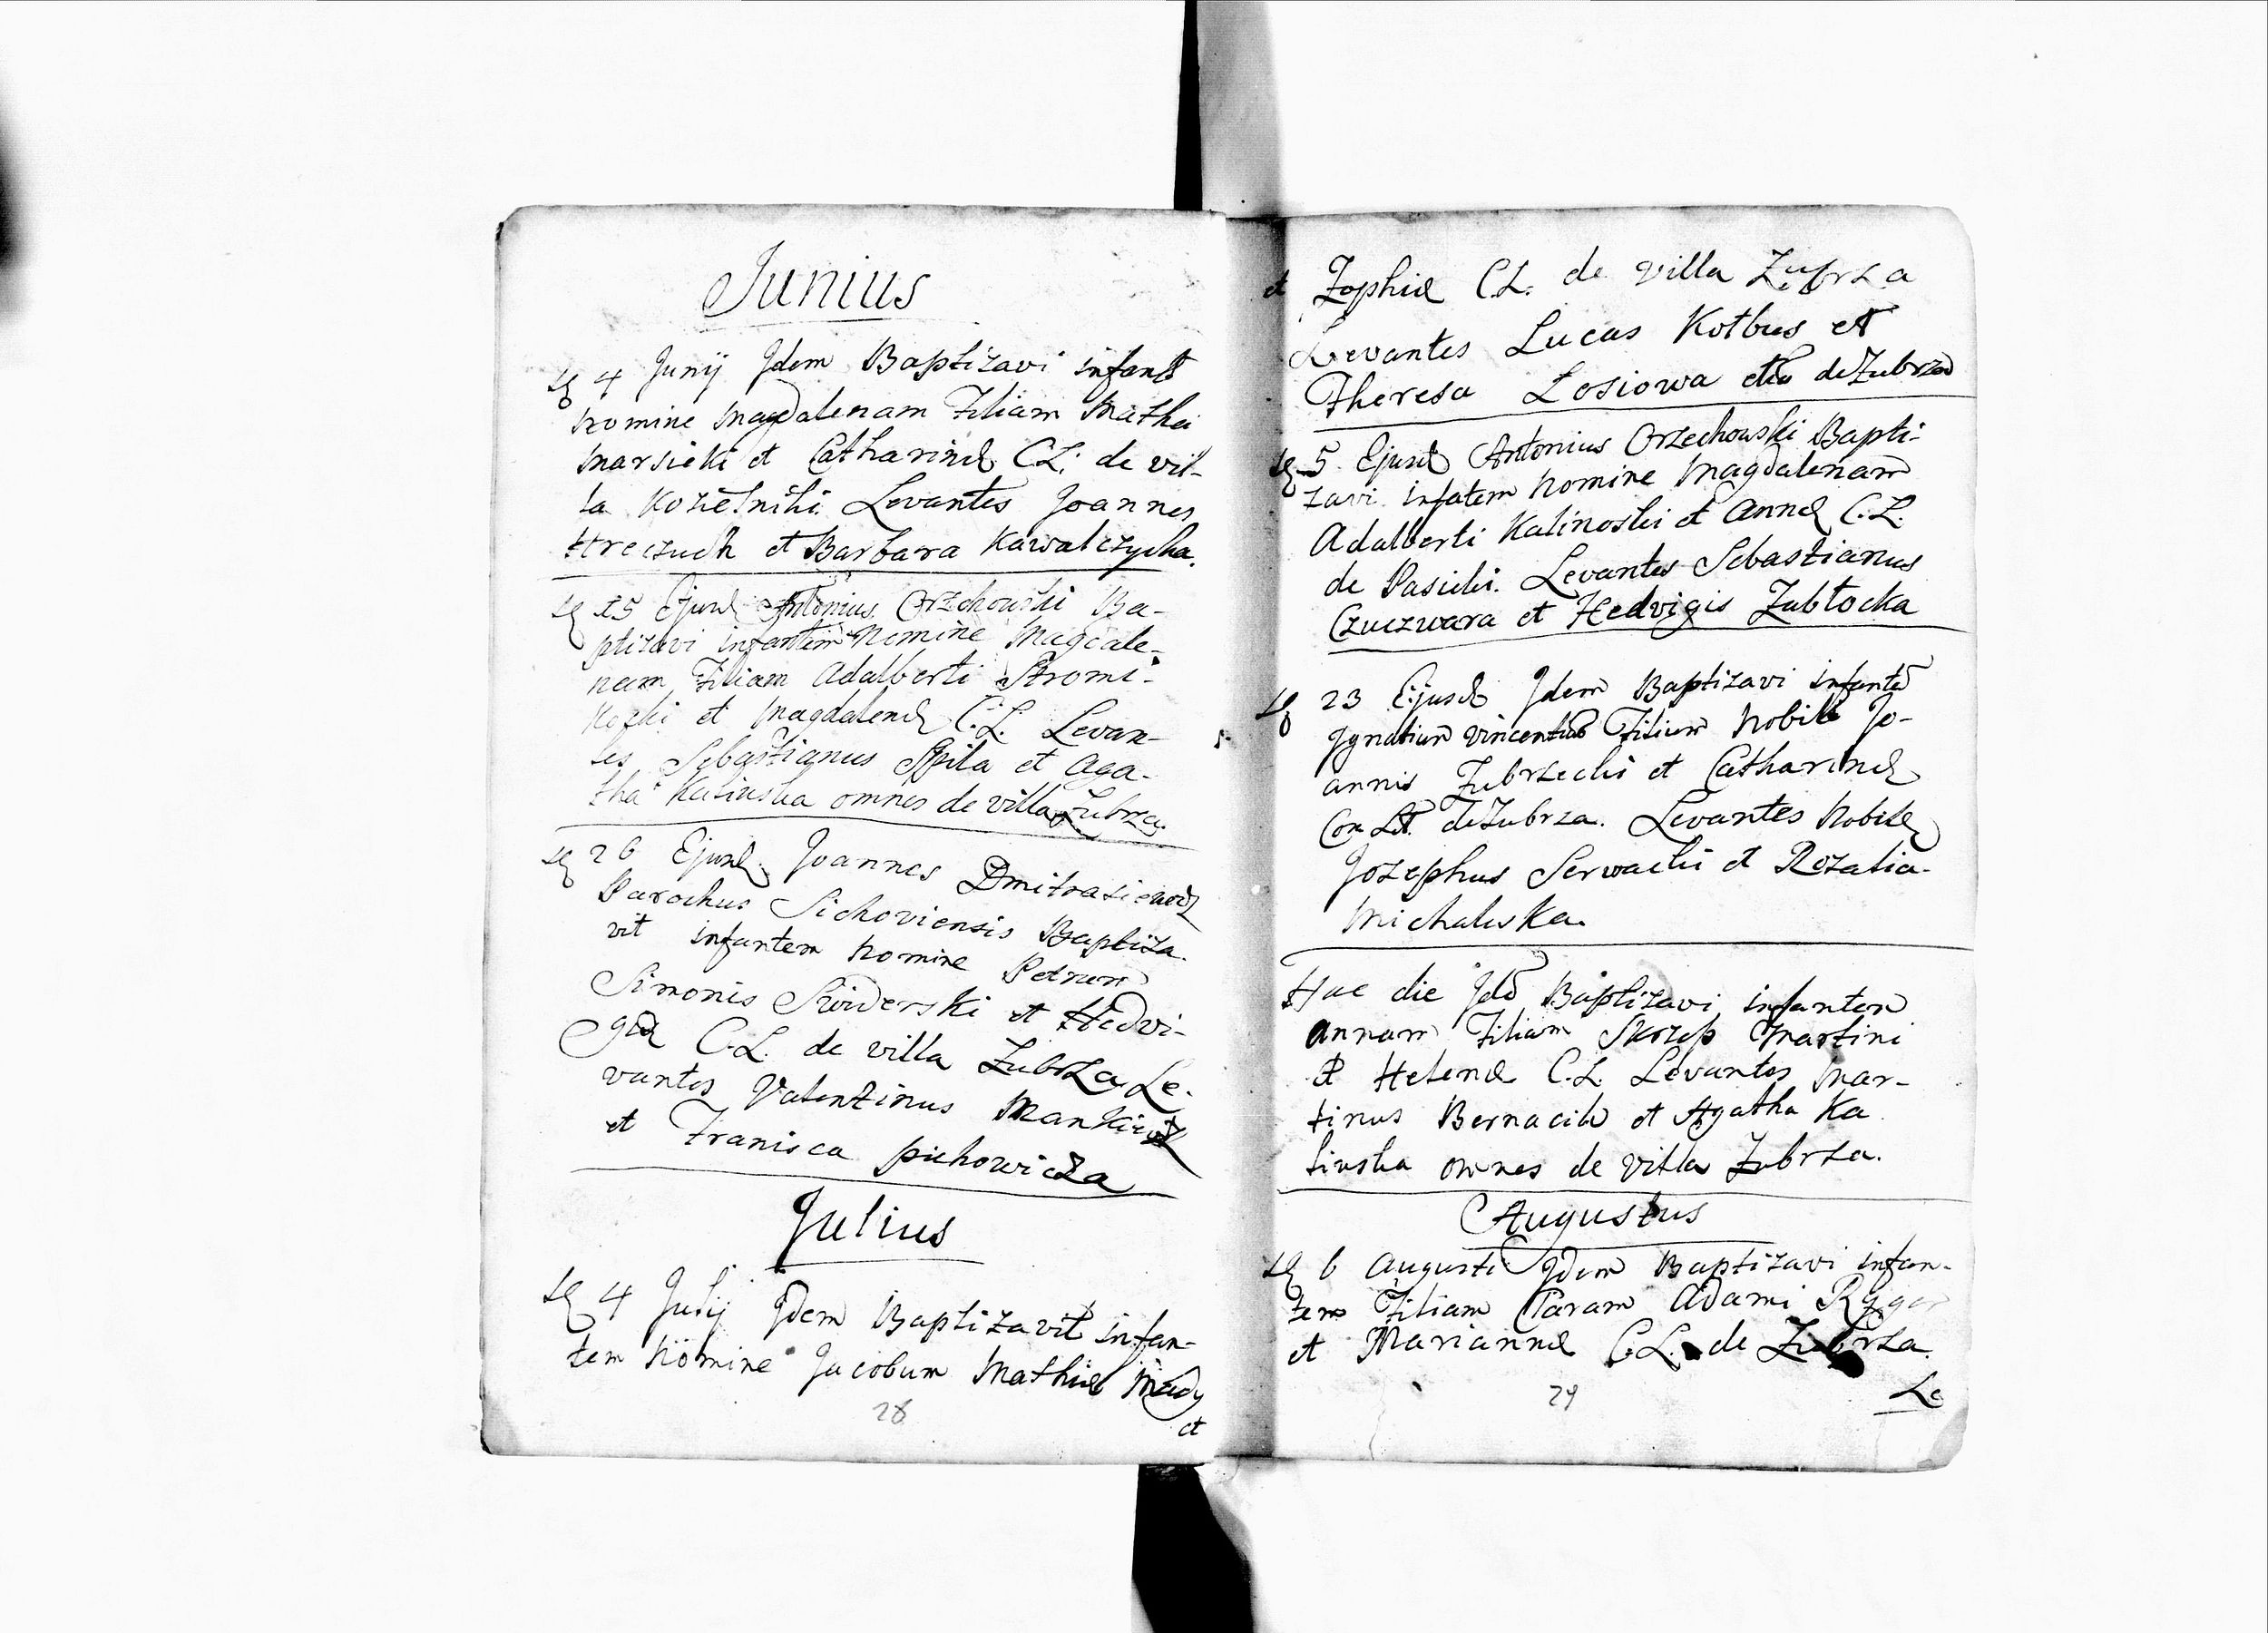 Junius
4 Junij Jdem Baptizavi infant
Nomine Magdalenam Filiam Mathei
Marsicki et Catharinæ C.L: de vil-
la Kozielniki Levantes Joannes
Hreczuch et Barbara Kawalczycka.
25 Ejusd Antonius Orzchowski Ba-
ptizavi infantem Nomine Magdale-
nam Filiam Adalberti Stromi-
kozki et Magdalenæ C.L. Levan-
tes Sebastianus Spila et Aga-
tha Kalinska omnes de villa Zubrza.
26 Ejusd. Joannes Dmitrasiewicz
Parochus Sichoviensis Baptiza-
vit infantem Nomine Petrum
Simonis Swiderski et Hedvi-
gis C.L. de villa Zubrza Le-
vantes Valentinus Mankiewicz
et Franisca Pichowicza
Julius
4 Julij Jdem Baptizavit infan-
tem Nomine Jacobum Mathiæ Mazdy
et
28
et Zophiæ C.L. de villa Zubrza
Levantes Lucas Kotbus et
Theresa Losiowa de Zubrza
5 Ejusd Antonius Orzechowski Bapti-
zavi infatem Nomine Magdalenam
Adalberti Kalinoski et Annæ C.L.
de Pasieki. Levantes Sebastianus
Czuczwara et Hedvigis Zubłocka
23 Ejusd Jdem Baptizavi infante
Jgnatium Vincentium Filium Nobilis Jo-
annis Zubrzecki et Catharinæ
Con L. de Zubrza. Levantes Nobiles
Jozephus Serwacki et Rozalia
Michaluska.
Hac die Jde Baptizavi infantem
Annam Filiam Skrzep Martini
et Helenæ C.L. Levantes Mar-
tinus Bernacik et Agatha Ka
linska omnes de villa Zubrza.
Augustus
6 Augusti Jdem Baptizavi infan-
tem Filiam Claram Adami Rygor
et Mariannæ C.L. de Zubrza.
Le
29